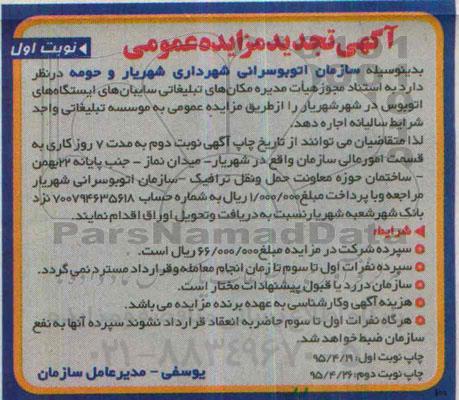 آگهی تجدید مزایده عمومی
نوبت اول
بدینوسیله سازمان اتوبوسرانی شهرداری شهریار و حومه درنظر
دارد به استناد مجوز هیأت مدیره مکان‌های تبلیغاتی سایبان‌های ایستگاه‌های
اتوبوس در شهر شهریار را از طریق مزایده عمومی به موسسه تبلیغاتی واجد
شرایط سالیانه اجاره دهد.
لذا متقاضیان می توانند از تاریخ چاپ آگهی نوبت دوم به مدت ۷ روز کاری به
قسمت امور مالی سازمان واقع در شهریار- میدان نماز - جنب پایانه ۲۲ بهمن
- ساختمان حوزه معاونت حمل ونقل ترافیک - سازمان اتوبوسرانی شهریار
مراجعه وبا پرداخت مبلغ ۱/۰۰۰/۰۰۰ ریال به شماره حساب ۷۰۰۷۹۴۶۳۵۶۱۸ نزد
بانک شهر شعبه شهریار نسبت به دریافت وتحویل اوراق اقدام نمایند.
شرایط:
سپرده شرکت در مزایده مبلغ ۶۶/۰۰۰/۰۰۰ ریال است.
سپرده نفرات اول تا سوم تا زمان انجام معامله وقرارداد مسترد نمی گردد.
سازمان در رد یا قبول پیشنهادات مختار است.
هزینه آگهی وکارشناسی به عهده برنده مزایده می باشد.
هر گاه نفرات اول تا سوم حاضر به انعقاد قرارداد نشوند سپرده آنها به نفع
سازمان ضبط خواهد شد.
چاپ نوبت اول: ۹۵/۴/۱۹
چاپ نوبت دوم: ۹۵/۴/۲۶
یوسفی - مدیرعامل سازمان
ParsNamadData
۰۲۱-۸۸۳۴۹۶۷۰